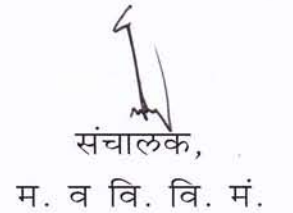 संचालक,
म. व वि. वि. मं.